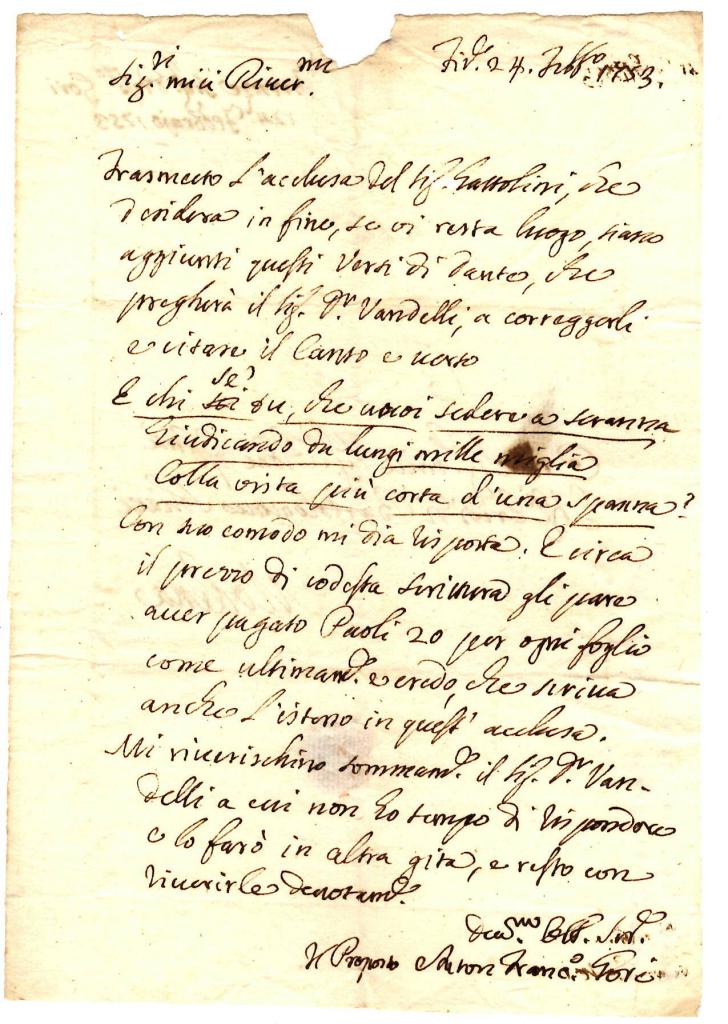 Sig.ri miei River.mi
Fir.e 24. Febb.o 1753.
Trasmetto l'acclusa del Sig. Gattolini, che
desidera in fine, se vi resta luogo, siano
aggiunti questi versi di Dante, che
pregherà il Sig. D.r Vandelli, a correggerli
e citare il Canto e verso
E chi sei se? tu, che vuoi sedere a scranna
Giudicando da lungi mille miglia
Colla vista più corta d'una spanna?
Con suo comodo mi dia risposta. E circa
il prezzo di codesta scrittura gli pare
aver pagato Paoli 20 per ogni foglio
come ultimam.e e credo, che scriva
anche l'istesso in quest' acclusa.
Mi riverischino sommam.e il Sig. D.r Van-
delli a cui non ho tempo di rispondere
e lo farò in altra gita, e resto con
riverirle devotam.e
Dev.mo Obb. Ser.e
Il Proposto Anton Franc.o Gori